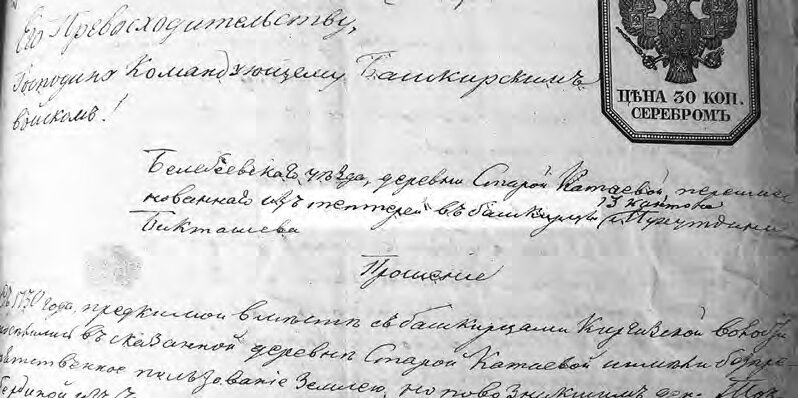 Его Превосходительству,
Господину Командующему Башкирскимъ
войскомъ!
ЦѢНА 30 КОП.
СЕРЕБРОМЪ.
Белебеевскаго уѣзда, деревни Старой Катаевой переиме
нованнаго изъ тептерей въ башкирцы 13 кантона
Бикташева
Прошеніе
года, предки мои вместѣ съ башкирцами Киргизской волости
въ сказанной деревнѣ Старой Катаевой имели безпре
пятственное пользованіе землею, но по возникшимъ